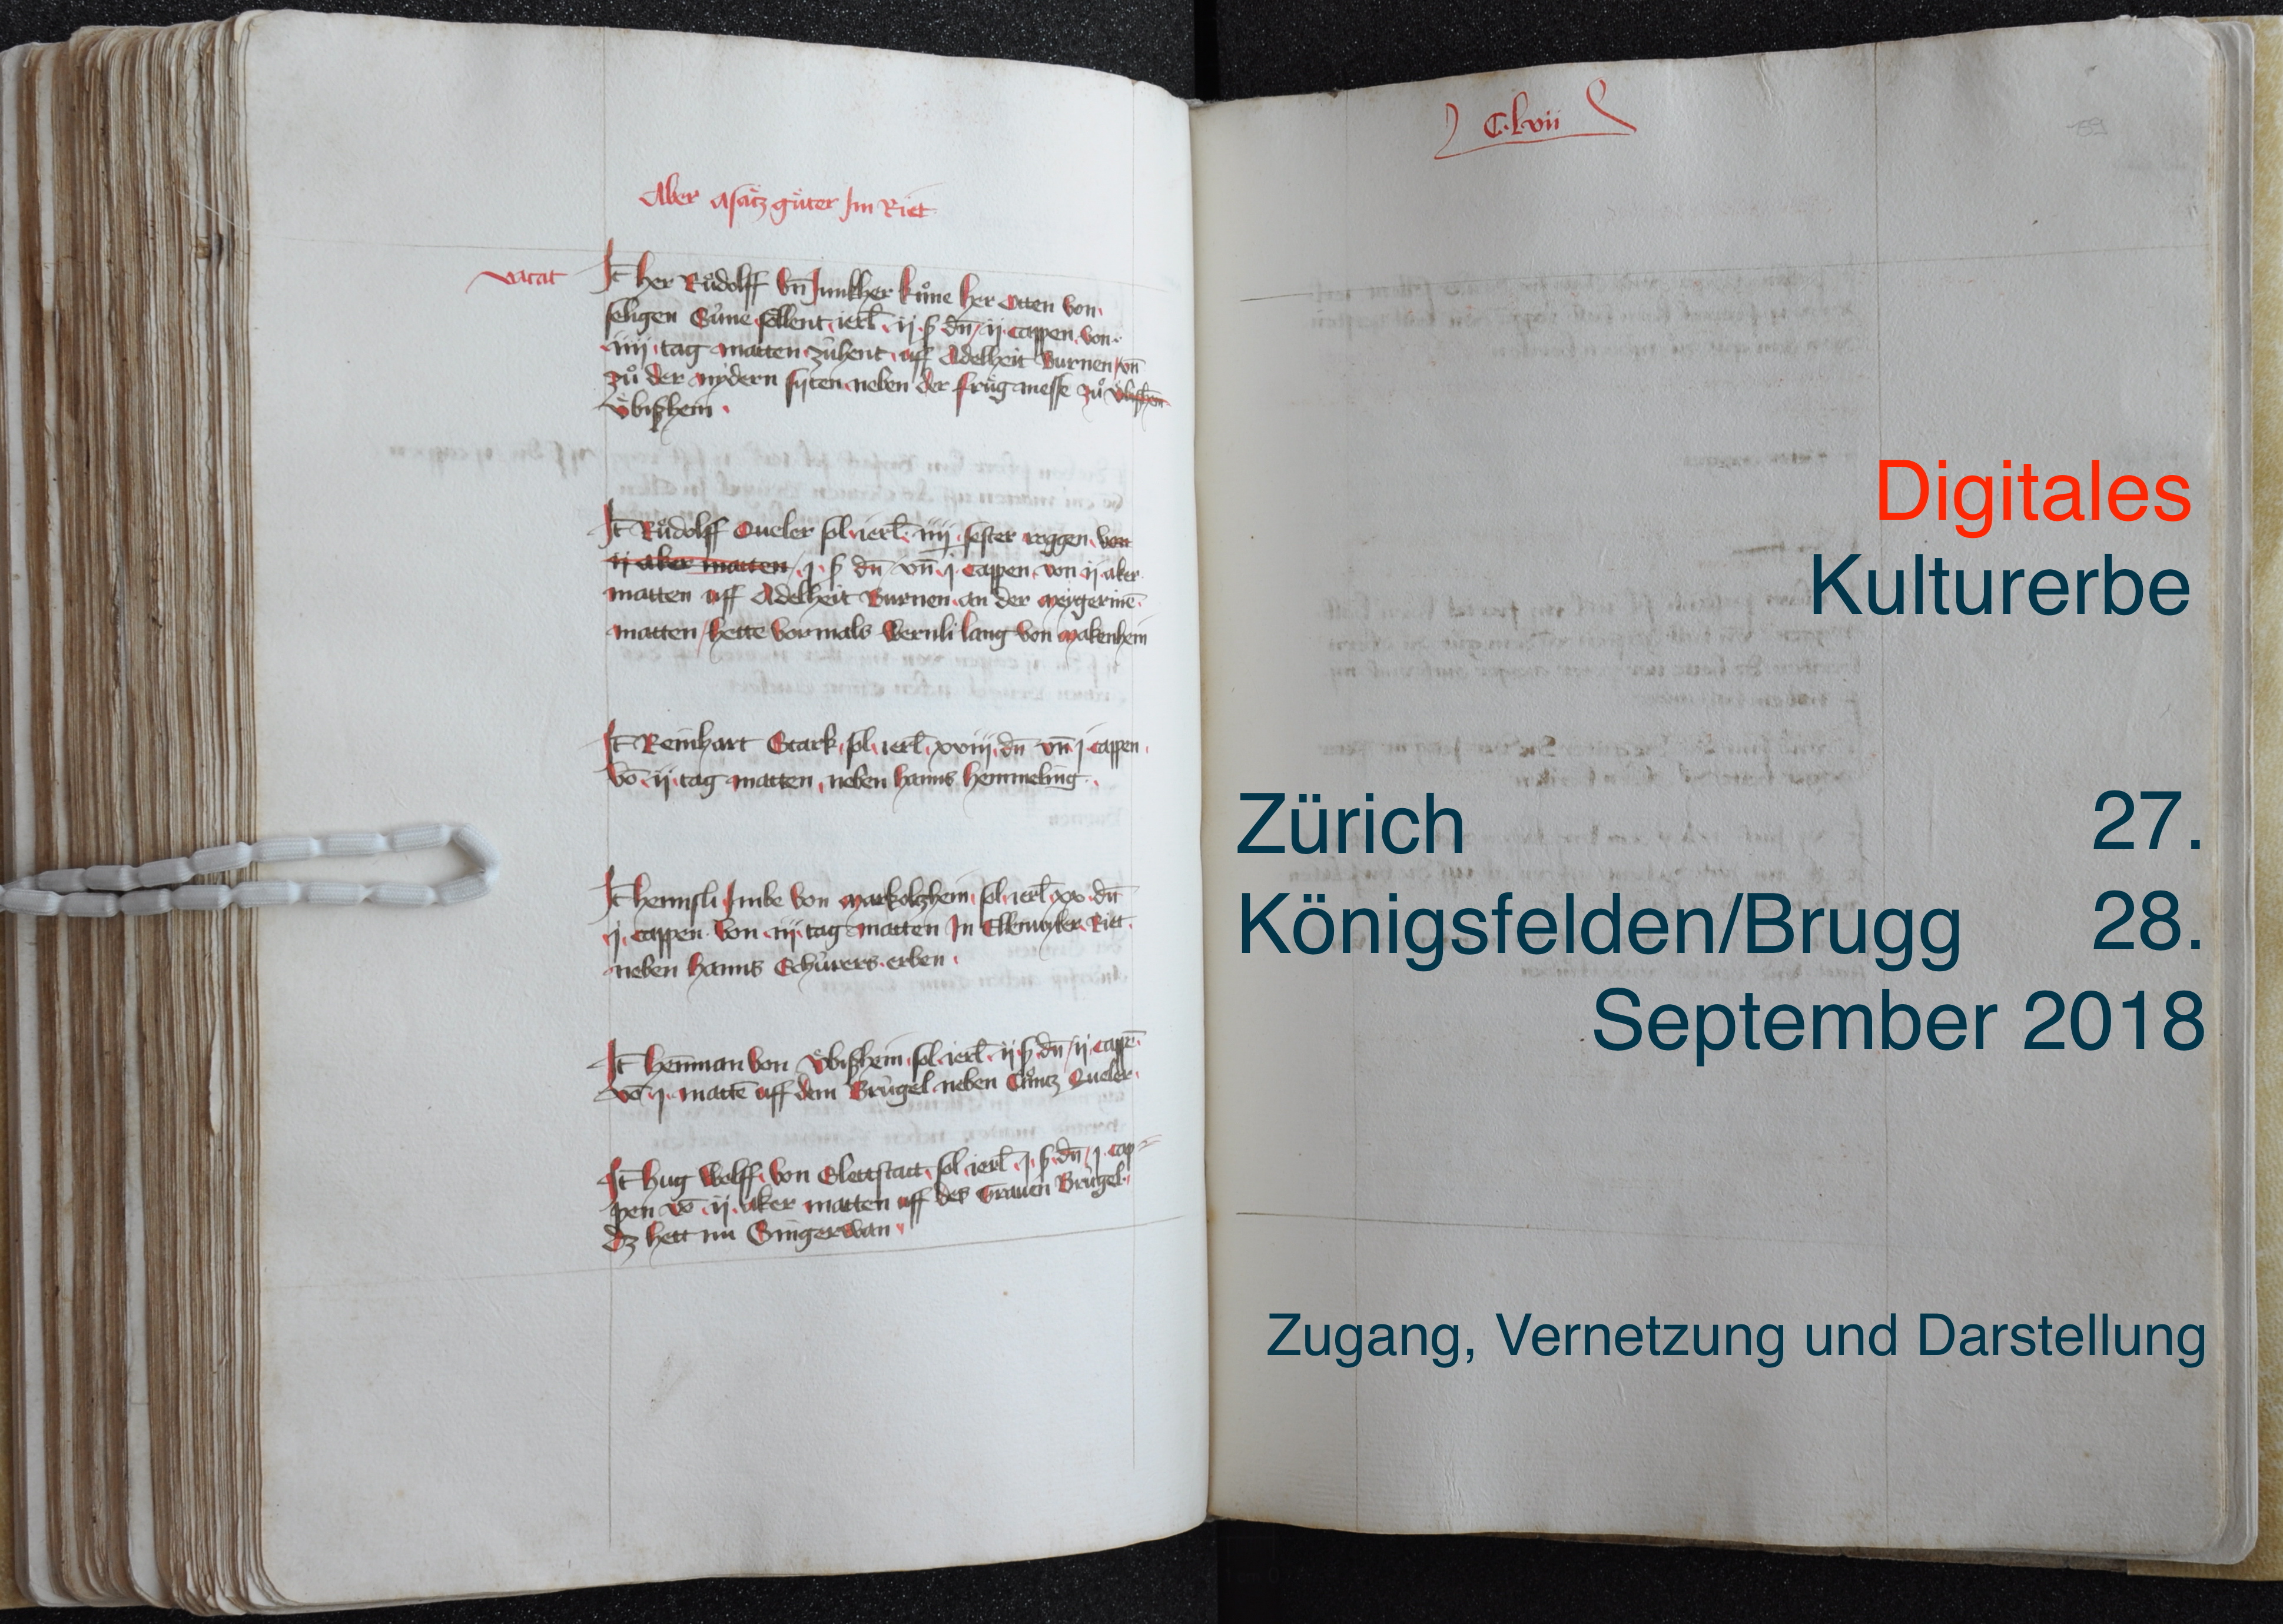 Aber Asätz güter Im Riet
vacat
It her Růdolff vn̄ Junkher kůne her Otten von
seligen Süne sōllent ierl. ij ß dn̄ / ij cappen von
iiij tag matten zühent uff Adelheit Burnen / vn̄
zů der nydern syten neben der frügmesse zů
Vbißhein
It Růdolff Queler sol ierl. iiij sester roggen von
ij aker matten / j ß dn̄ vn̄ j cappen von ij aker
matten uff Adelheit Burnen an der
matten / hette vormals Wernli lang von Makenhein
It Reinhart Stark sol ierl. xviij dn̄ vn̄ j cappen
vō ij tag matten neben hanns hemmeling
It hennsli Imbe von Markolzhein sol ierl. xx dn̄
j cappen von iij tag matten In Ellenwyler Riet
neben hanns Schürers erben
It henman von Vbißhein sol ierl. ij ß dn̄ / ij
vō j mattē uff dem Brügel neben Cůntz Queler
It hug Wolff von Slettstatt sol ierl. j ß dn̄ / j cap=
pen vō ij aker matten uff des Grauen Brügel
dz hett nu Singerwan
C.l.vii
159
Digitales
Kulturerbe
Zürich 27.
Königsfelden/Brugg 28.
September 2018
Zugang, Vernetzung und Darstellung